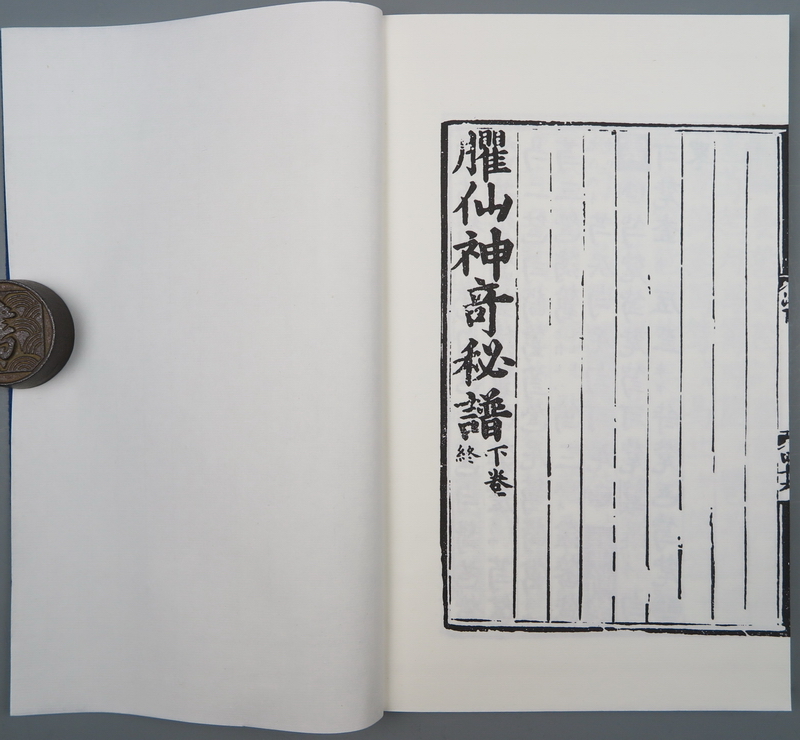 臞仙神奇秘譜下卷
終